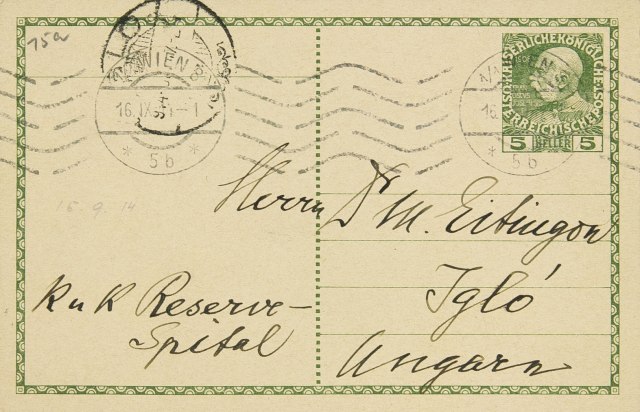 75a
WIEN
16. IX
* 5b *
KAISERLICHE KÖNIGLICHE ÖSTERREICHISCHE POST
5 HELLER 5
* 5b *
15.9.14
Herrn Dr M. Eitingon
Igló
Ungarn
K u K Reserve-
Spital